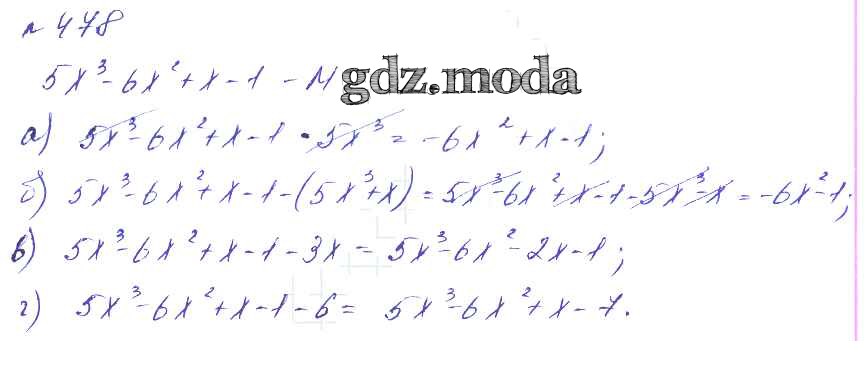 № 478
5x³-6x²+x-1 - М gdz.moda
а) 5x³-6x²+x-1 - 5x³ = -6x²+x-1;
б) 5x³-6x²+x-1-(5x³+x) = 5x³-6x²+x-1-5x³-x = -6x²-1;
в) 5x³-6x²+x-1-3x = 5x³-6x²-2x-1;
г) 5x³-6x²+x-1-6= 5x³-6x²+x-7.